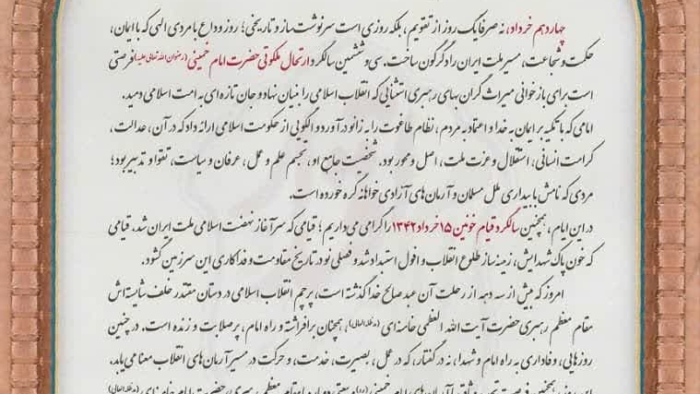 چهاردهم خرداد، نه صرفاً یک روز از تقویم، بلکه روزی است سرنوشت‌ساز و تاریخی؛ روز وداع با مردی الهی که با ایمان،
حکمت و شجاعت، مسیر ملت ایران را دگرگون ساخت. سی و ششمین سالگرد ارتحال ملکوتی حضرت امام خمینی (رضوان الله تعالی علیه) فرصتی
است برای بازخوانی میراث گران‌بهای رهبری استثنایی که انقلاب اسلامی را بنیان نهاد و جان تازه‌ای به امت اسلامی دمید.
امامی که با تکیه بر ایمان به خدا و اعتماد به مردم، نظام طاغوت را به زانو درآورد و الگویی از حکومت اسلامی ارائه داد که در آن، عدالت،
کرامت انسانی، استقلال و عزت ملت، اصل و محور بود. شخصیت جامع او، تجسم علم و عمل، عرفان و سیاست، تقوا و تدبیر بود؛
مردی که نامش با بیداری ملل مسلمان و آرمان‌های آزادی‌خواهانه گره خورده است.
در این ایام، همچنین سالگرد قیام خونین ۱۵ خرداد ۱۳۴۲ را گرامی می‌داریم؛ قیامی که سرآغاز نهضت اسلامی ملت ایران شد، قیامی
که خون پاک شهدایش، زمینه‌ساز طلوع انقلاب و افول استبداد شد و فصلی نو در تاریخ مقاومت و فداکاری این سرزمین گشود.
امروز که بیش از سه دهه از رحلت آن عبد صالح خدا گذشته است، پرچم انقلاب اسلامی در دستان مقتدر خلف شایسته‌اش
مقام معظم رهبری حضرت آیت الله العظمی خامنه‌ای (مدظله العالی)، همچنان برافراشته و راه امام، پرصلابت و زنده است. در چنین
روزهایی، وفاداری به راه امام و شهدا، نه در گفتار، که در عمل، بصیرت، خدمت، و حرکت در مسیر آرمان‌های انقلاب معنا می‌یابد.